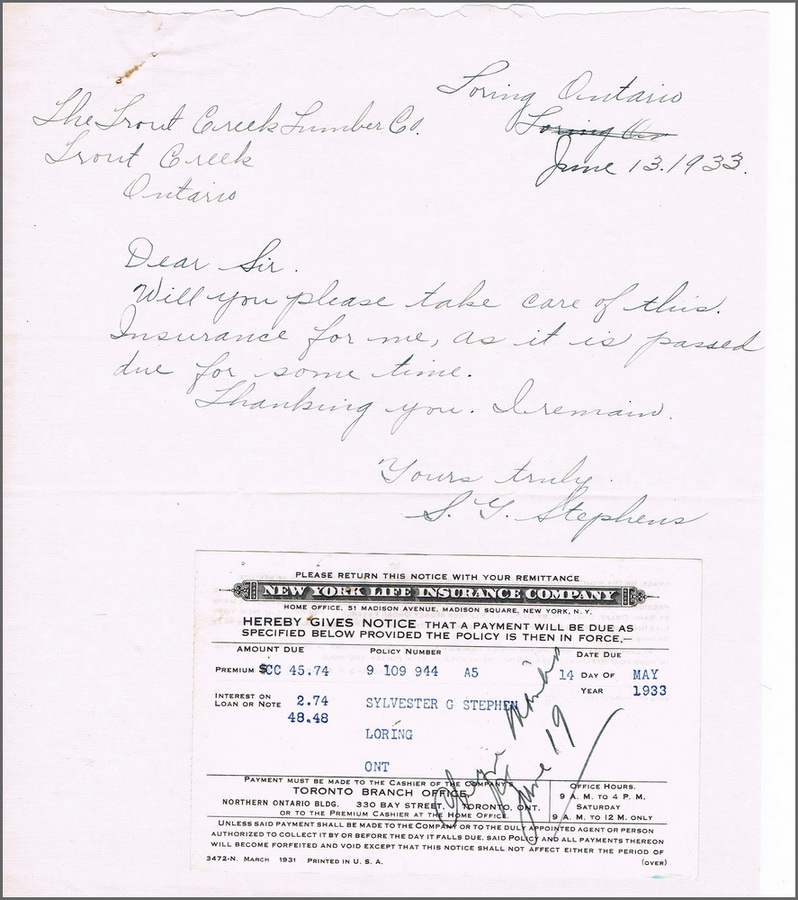 Loring Ontario
The Trout Creek Lumber Co.
Loring On
Trout Creek
June 13. 1933.
Ontario
Dear Sir.
Will you please take care of this.
Insurance for me, as it is passed
due for some time.
Thanking you. I remain.
Yours truly.
S. G. Stephens
PLEASE RETURN THIS NOTICE WITH YOUR REMITTANCE
NEW YORK LIFE INSURANCE COMPANY
HOME OFFICE, 51 MADISON AVENUE, MADISON SQUARE, NEW YORK, N.Y.
HEREBY GIVES NOTICE THAT A PAYMENT WILL BE DUE AS
SPECIFIED BELOW PROVIDED THE POLICY IS THEN IN FORCE,—
AMOUNT DUE POLICY NUMBER DATE DUE
PREMIUM $CC 45.74 9 109 944 A5 14 DAY OF MAY
YEAR 1933
INTEREST ON
LOAN OR NOTE 2.74 SYLVESTER G STEPHEN
48.48
LORING
ONT
June 19
PAYMENT MUST BE MADE TO THE CASHIER OF THE COMPANY'S
TORONTO BRANCH OFFICE
NORTHERN ONTARIO BLDG. 330 BAY STREET, TORONTO, ONT.
OR TO THE PREMIUM CASHIER AT THE HOME OFFICE.
OFFICE HOURS.
9 A.M. TO 4 P.M.
SATURDAY
9 A.M. TO 12 M. ONLY
UNLESS SAID PAYMENT SHALL BE MADE TO THE COMPANY OR TO THE DULY APPOINTED AGENT OR PERSON
AUTHORIZED TO COLLECT IT BY OR BEFORE THE DAY IT FALLS DUE, SAID POLICY AND ALL PAYMENTS THEREON
WILL BECOME FORFEITED AND VOID EXCEPT THAT THIS NOTICE SHALL NOT AFFECT EITHER THE PERIOD OF
3472-N. MARCH 1931 PRINTED IN U.S.A. (OVER)